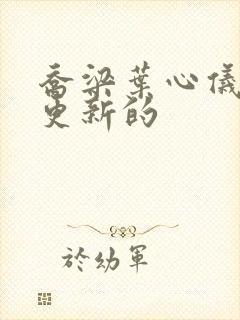 乔梁葉心儀
更新的
於幼軍